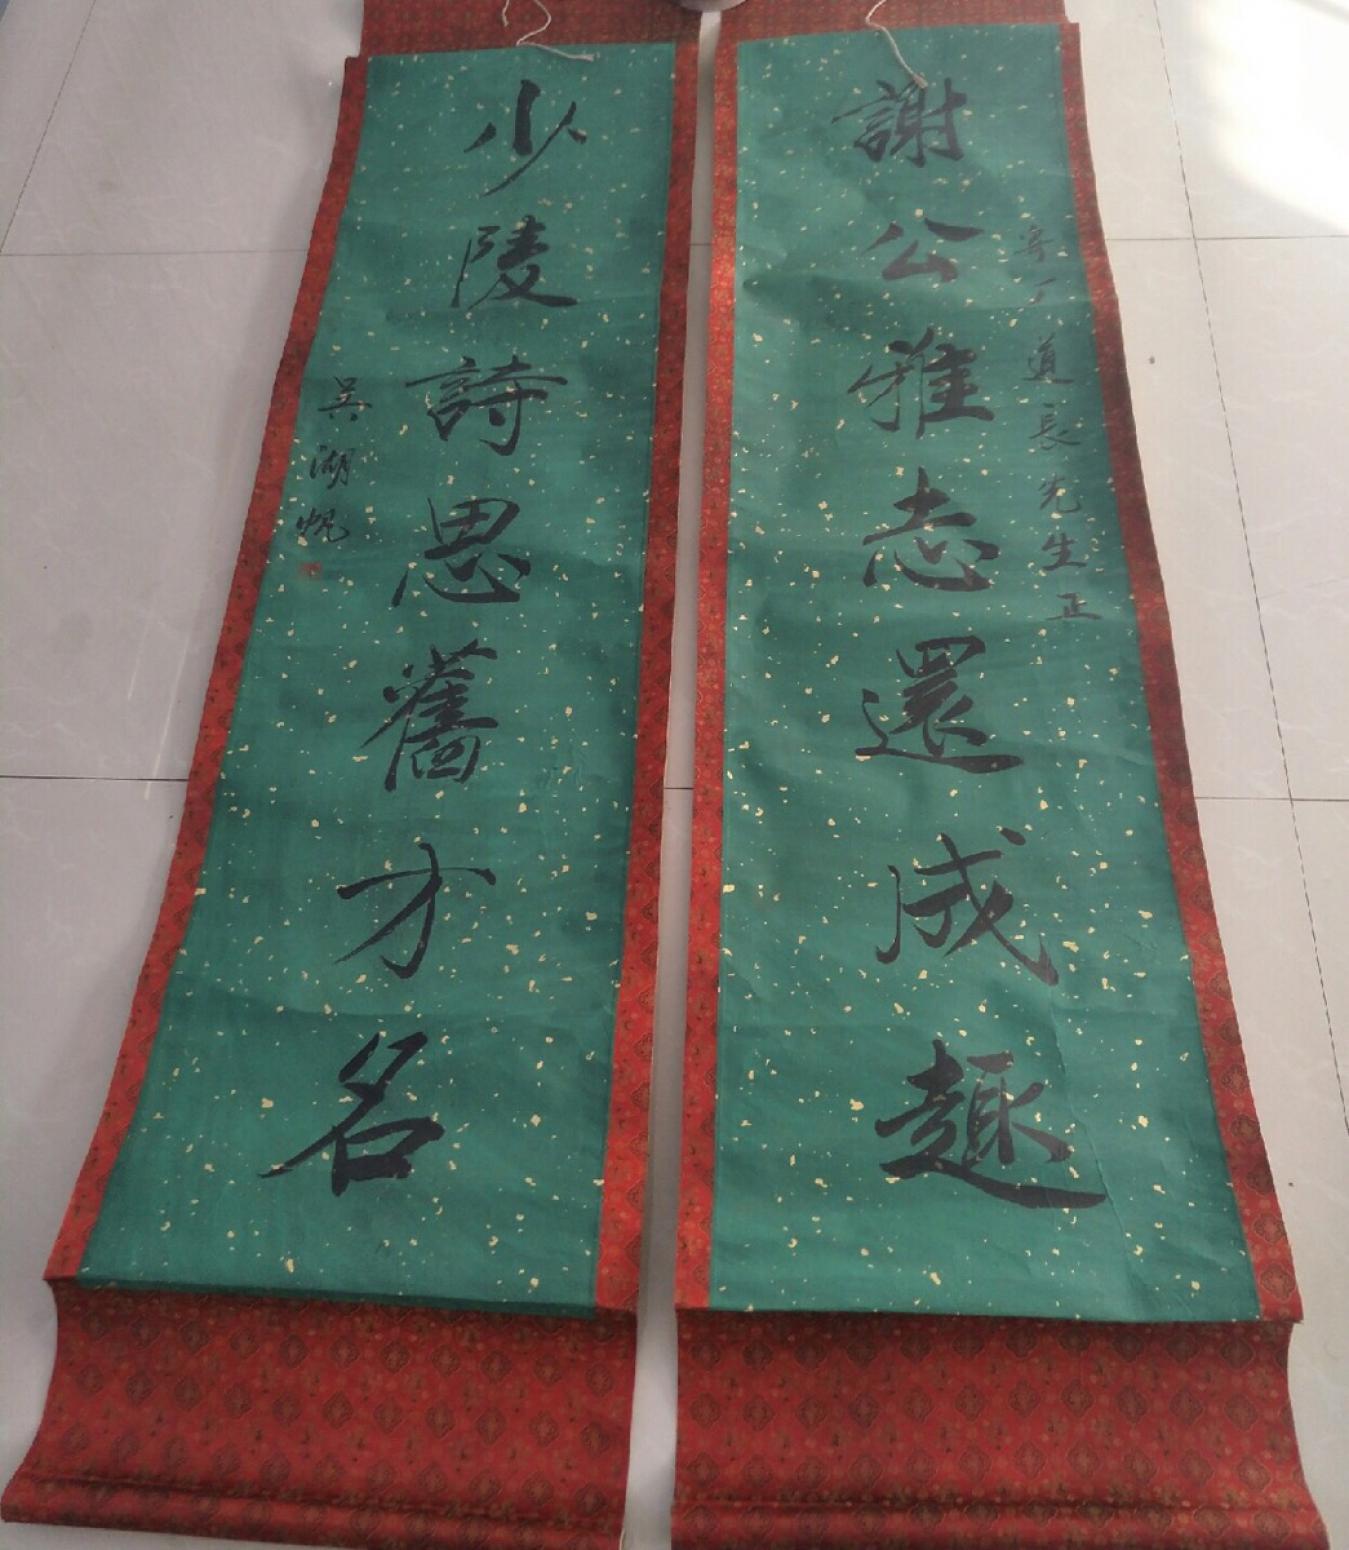 謝公雅志還成趣
寄丁道長先生正
少陵詩思舊才名
吳湖帆